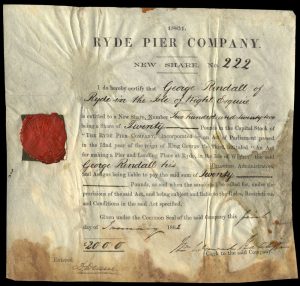 1861.
RYDE PIER COMPANY.
NEW SHARE, No. 222
I do hereby certify that George Rendall of
Ryde in the Isle of Wight Esquire
is entitled to a New Share, Number Two hundred and twenty two
being a Share of Twenty Pounds in the Capital Stock of
"THE RYDE PIER COMPANY," incorporated by an Act of Parliament passed
in the 52nd year of the reign of King George the Third, intituled "An Act
for making a Pier and Landing Place at Ryde, in the Isle of Wight;" the said
George Rendall his Executors, Administrators,
and Assigns being liable to pay the said sum of Twenty
Pounds, as and when the same may be called for, under the
provisions of the said Act, and being subject and liable to the Rules, Restrictions,
and Conditions in the said Act specified.
Given under the Common Seal of the said Company this
day of 186
£20 0 0
Clerk to the said Company
Entered